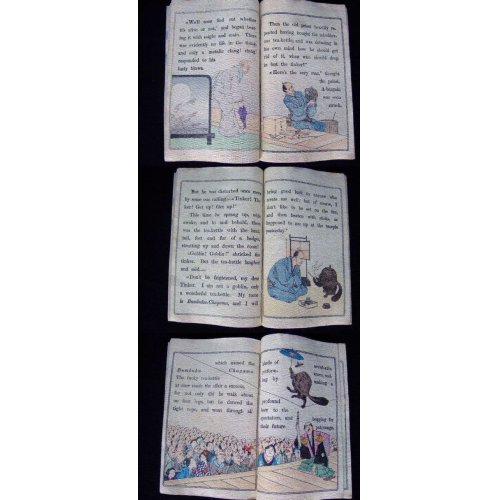 "We'll soon find out whether
it's alive or not," and began beat-
ing it with might and main. There
was evidently no life in the thing,
and only a metallic clang! clang!
responded to his
lusty blows.
Then the old priest heartily re-
pented having bought the
tea-kettle, and was debating in
his own mind how he should get
rid of it, when who should drop
in but the tinker!
"Here's the very man," thought
the priest.
A bargain
was soon
struck.
But he was disturbed once more
by some one calling:—"Tinker! Tin-
ker! Get up! Get up!"
This time he sprang up, wide
awake, and lo and behold, there
was the tea-kettle with the head,
tail, feet and fur of a badger,
strutting up and down the room!
"Goblin! Goblin!" shrieked the
tinker. But the tea-kettle laughed
and said—
"Don't be frightened, my dear
Tinker. I am not a goblin, only
a wonderful tea-kettle. My name
is Bumbuku-Chagama, and I will
bring good luck to anyone who
treats me well; but of course, I
don't like to be set on the fire,
and then beaten with sticks, as
happened to me up at the temple
yesterday."
which earned the
Bumbuku Chagama
The lucky tea-kettle
at once made the affair a success,
for not only did he walk about
on four legs, but he danced the
tight rope, and went through all
kinds of acrobatic
perform- ances, end-
ing by making a
profound
bow to the
spectators, and begging for
their future patronage.